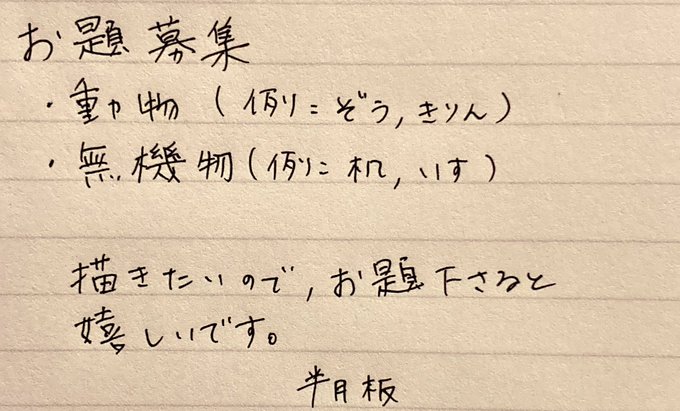 お題募集
・動物(例:ぞう,きりん)
・無機物(例:机,いす)
描きたいので,お題下さると
嬉しいです。
半月板